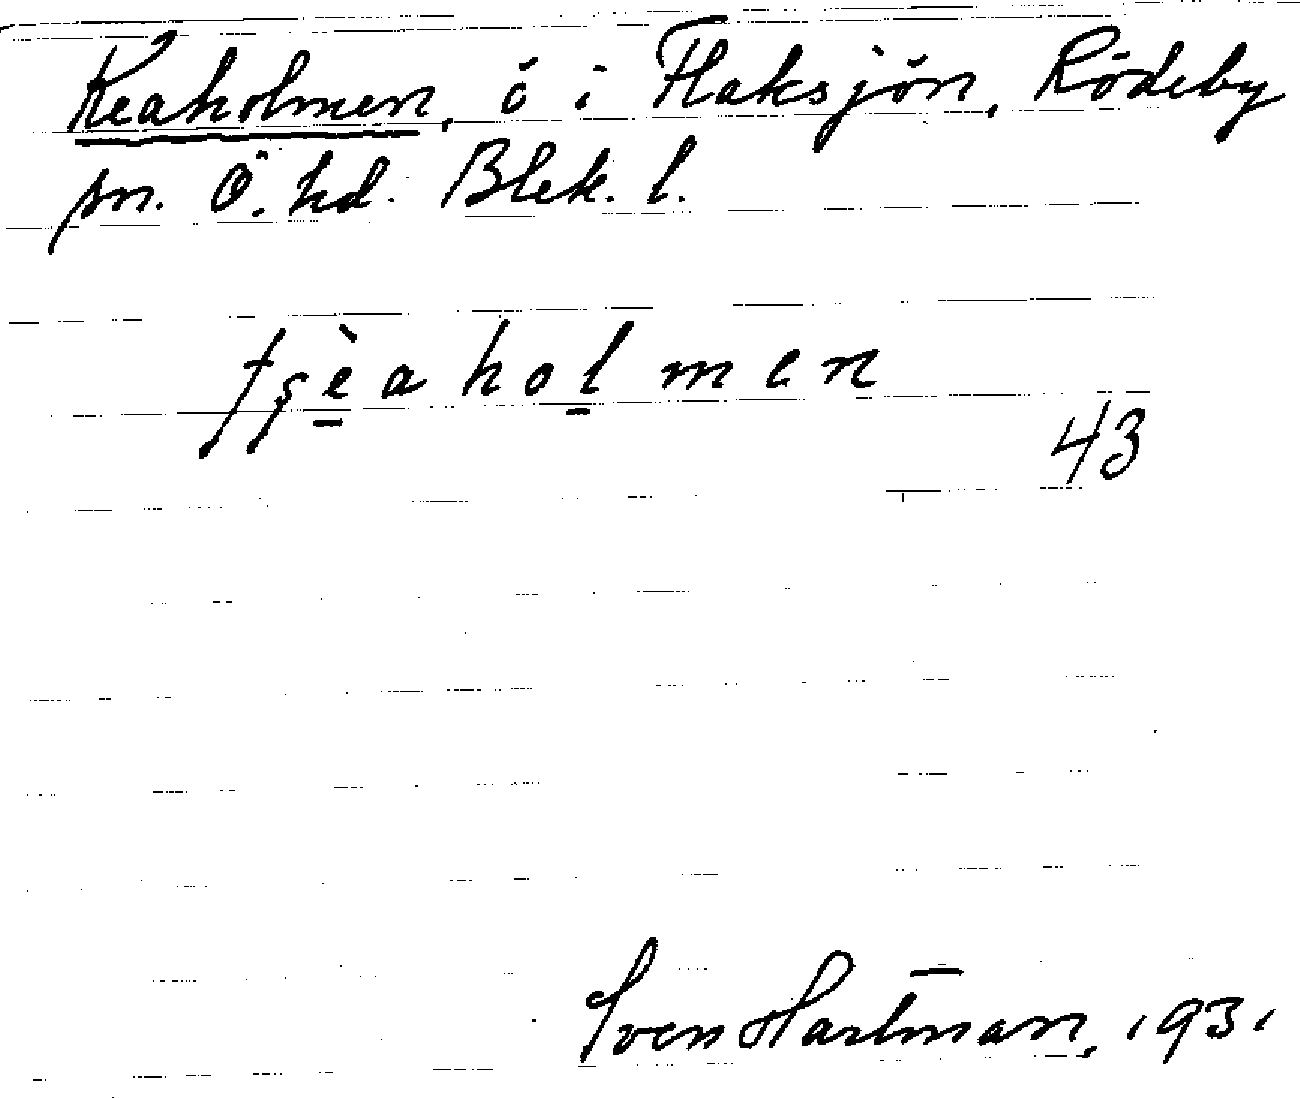 Keaholmen, ö i Flaksjön, Rödeby
sn. Ö. hd. Blek. l.
tʃèaholmen
43
Sven Hartman, 1931